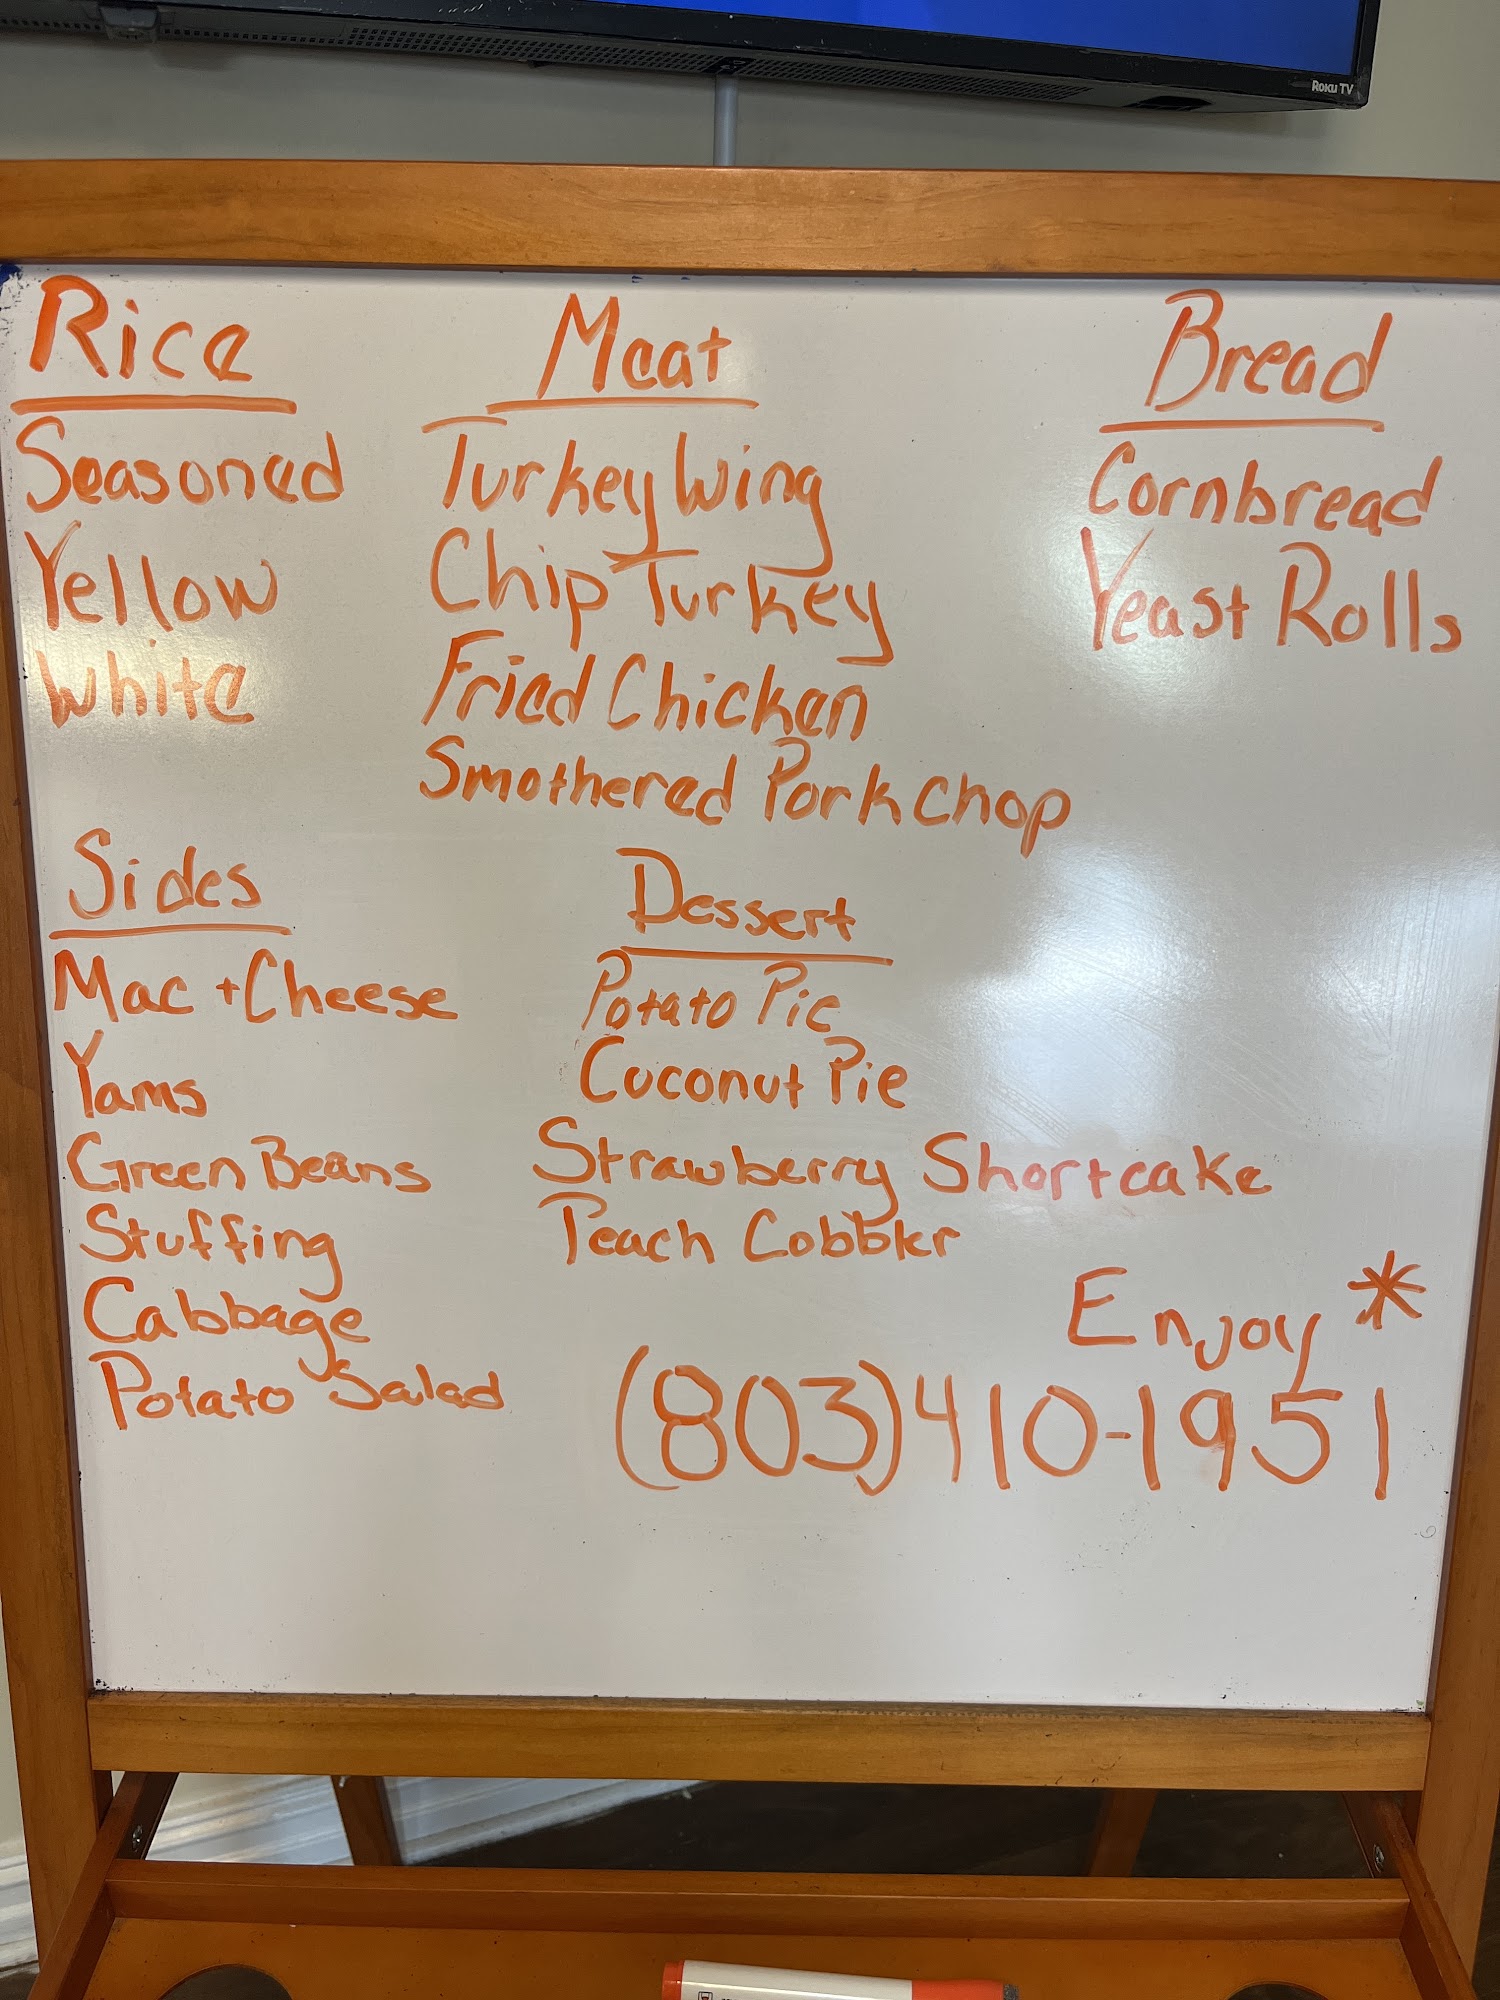 Roku TV
Rice
Seasoned
Yellow
White
Meat
Turkey Wing
Chip Turkey
Fried Chicken
Smothered Pork chop
Bread
Cornbread
Yeast Rolls
Sides
Mac + Cheese
Yams
Green Beans
Stuffing
Cabbage
Potato Salad
Dessert
Potato Pie
Coconut Pie
Strawberry Shortcake
Peach Cobbler
Enjoy *
(803) 410-1951